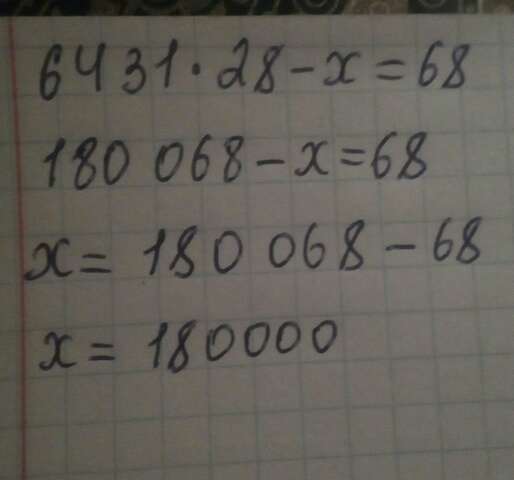 6431 · 28 - x = 68
180 068 - x = 68
x = 180 068 - 68
x = 180000